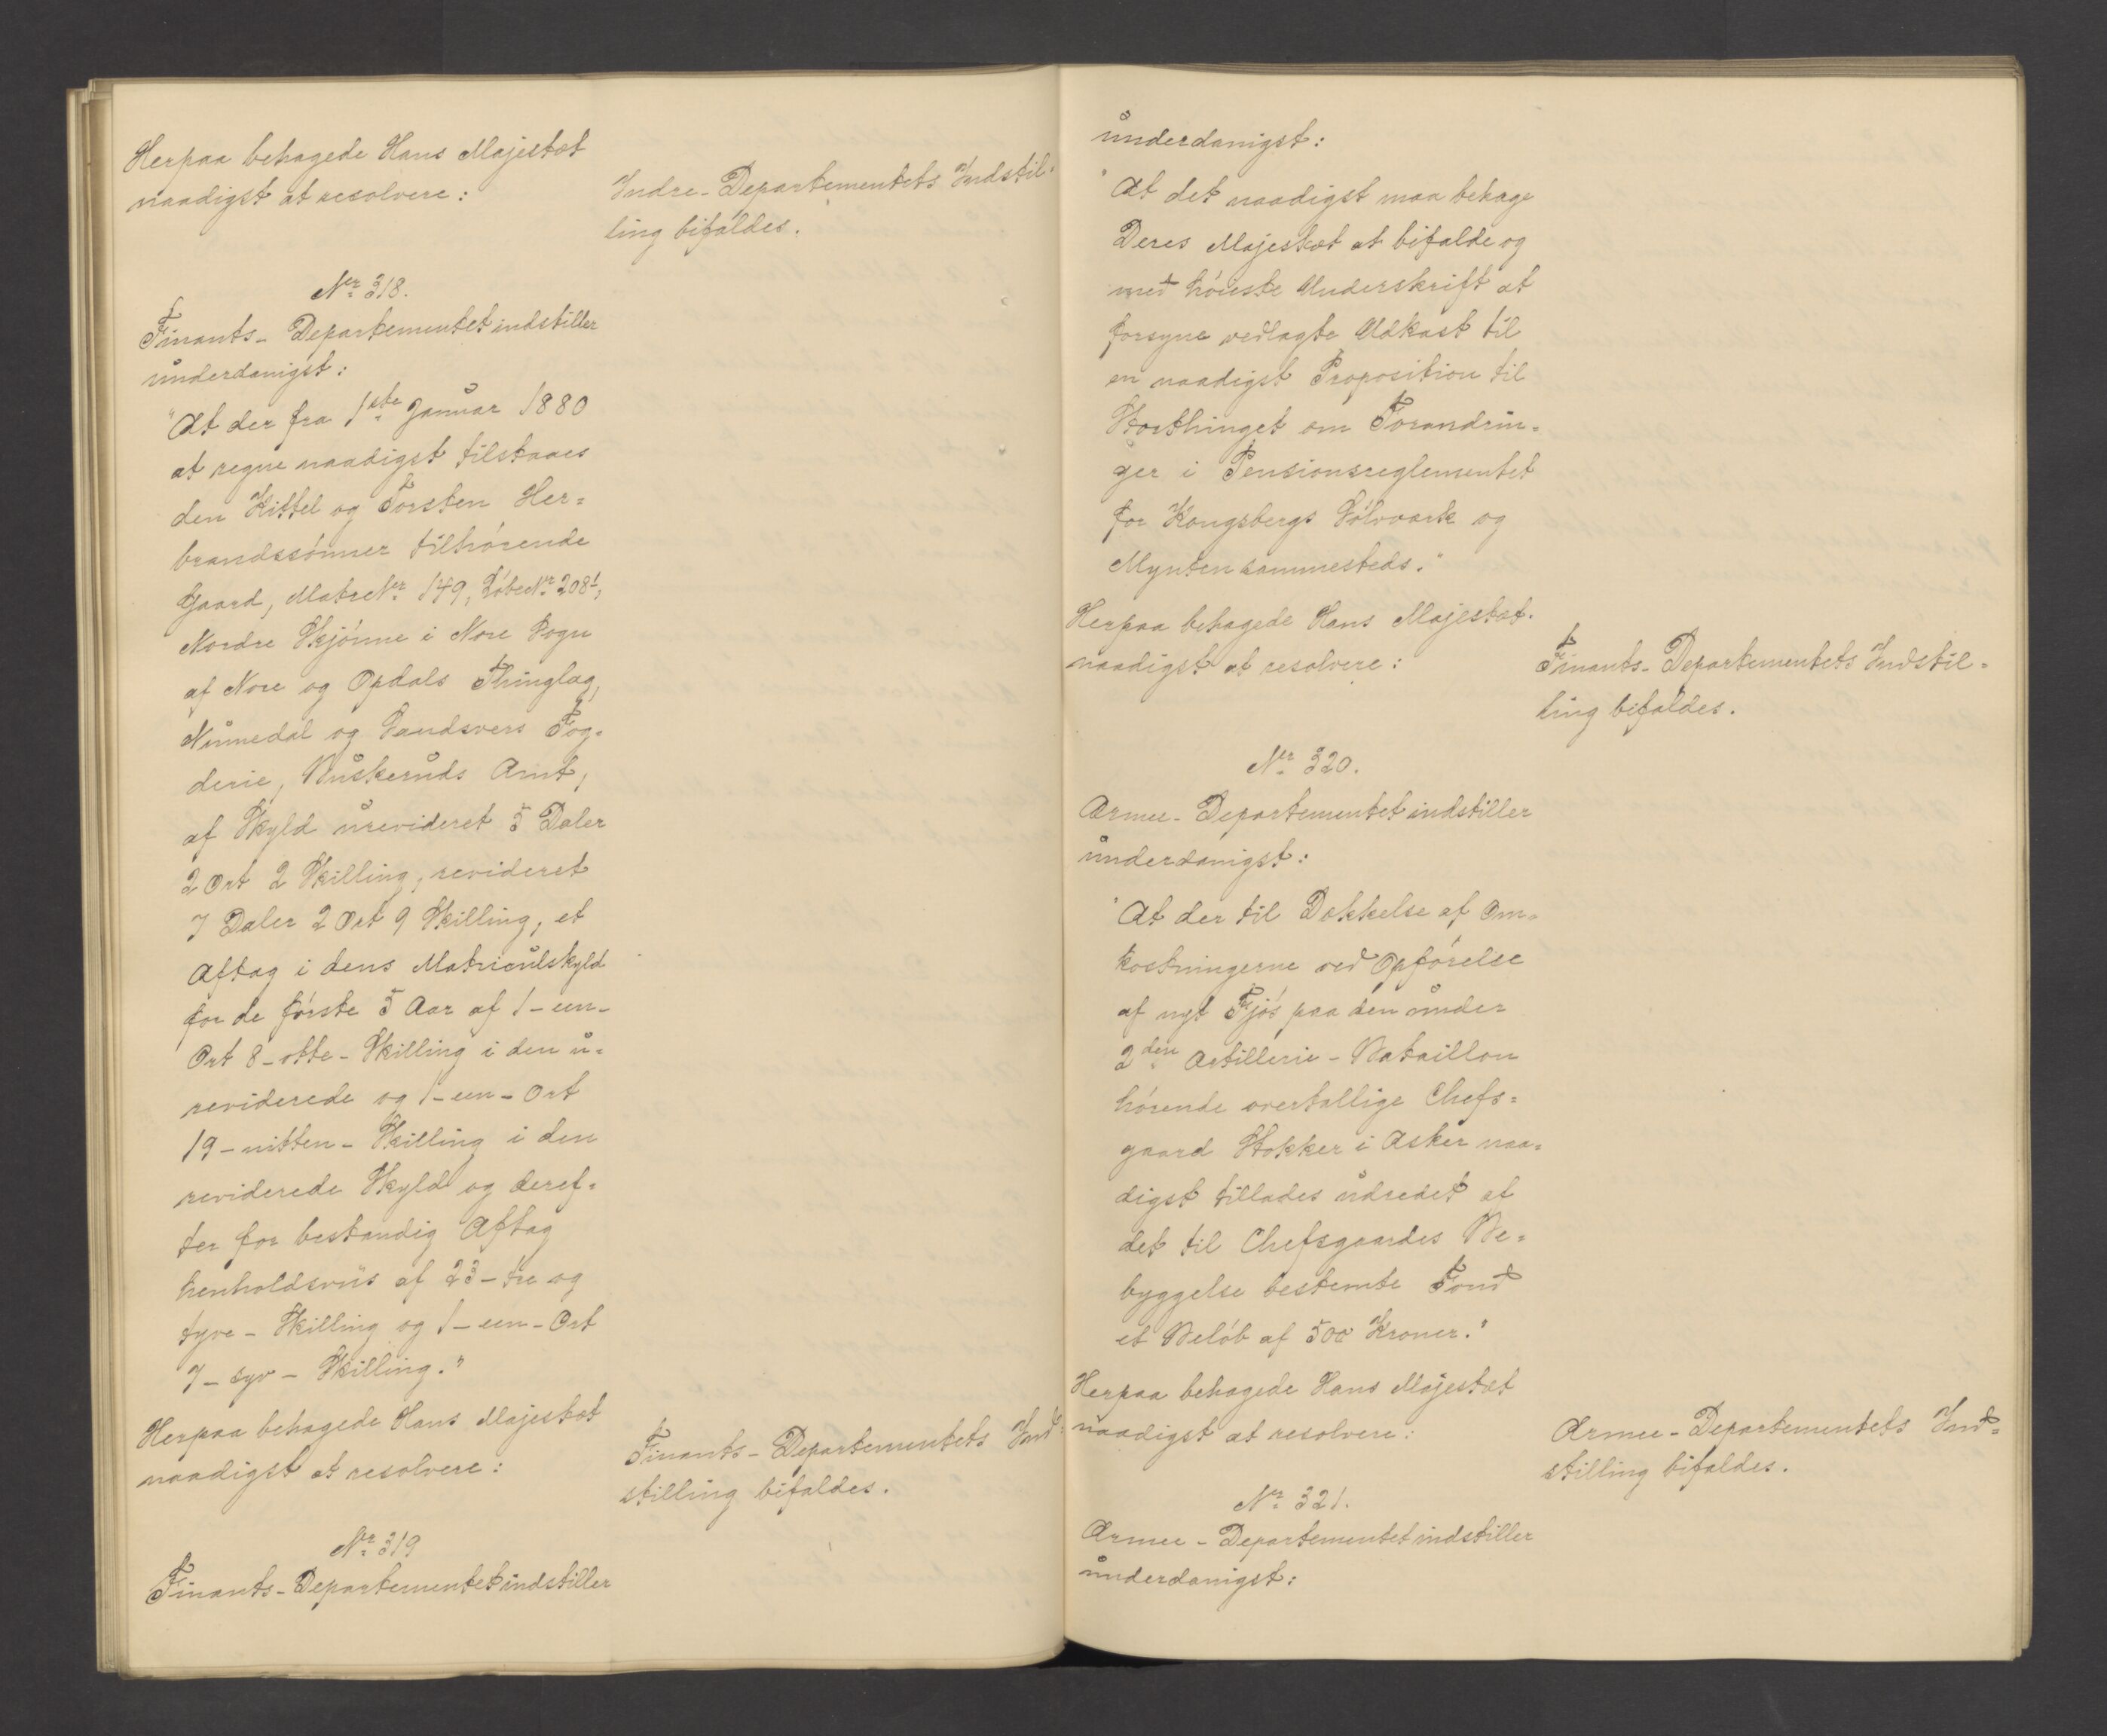 Herpaa behagede Hans Majestæt
naadigst at resolvere:
Indre-Departementets Indstil-
ling bifaldes.
No 318.
Finants-Departementet indstiller
underdanigst:
"At der fra 1ste Januar 1880
at regne naadigst tilstaaes
den Kittel og Torsten Her=
brandssønner tilhørende
Gaard, Matr No 149, Løbe No 208 1,
Nordre Skjønne i Nore Sogn
af Nore og Opdals Thinglag,
Numedal og Sandsvers Fog=
derie, Buskeruds Amt,
af Skyld urevideret 5 Daler
2 Ort 2 Skilling, revideret
7 Daler 2 Ort 9 Skilling, et
Aftag i dens Matriculskyld
for de første 5 Aar af 1-een-
Ort 8-otte-Skilling i den u=
reviderede og 1-een-Ort
19-nitten-Skilling i den
reviderede Skyld og deref=
ter for bestandig Aftag
henholdsviis af 23-tre og
tyve-Skilling og 1-een-Ort
7-syv-Skilling."
Herpaa behagede Hans Majestæt
naadigst at resolvere:
Finants-Departementets Ind=
stilling bifaldes.
No 319
Finants-Departementet indstiller
underdanigst:
"At det naadigst maa behage
Deres Majestæt at bifalde og
med høieste Underskrift at
forsyne vedlagte Udkast til
en naadigst Proposition til
Storthinget om Forandrin=
ger i Pensionsreglementet
for Kongsbergs Sølvværk og
Mynten sammesteds."
Herpaa behagede Hans Majestæt
naadigst at resolvere:
Finants-Departementets Indstil=
ling bifaldes.
No 320.
Armee-Departementet indstiller
underdanigst:
"At der til Dækkelse af Om=
kostningerne ved Opførelse
af nyt Fjøs paa den under
2den Artillerie-Bataillon
hørende overtallige Chefs=
gaard Stokker i Asker naa=
digst tillades udredet af
det til Chefsgaardes Be=
byggelse bestemte Fond
et Beløb af 500 Kroner."
Herpaa behagede Hans Majestæt
naadigst at resolvere:
Armee-Departementets Ind=
stilling bifaldes.
No 321.
Armee-Departementet indstiller
underdanigst: